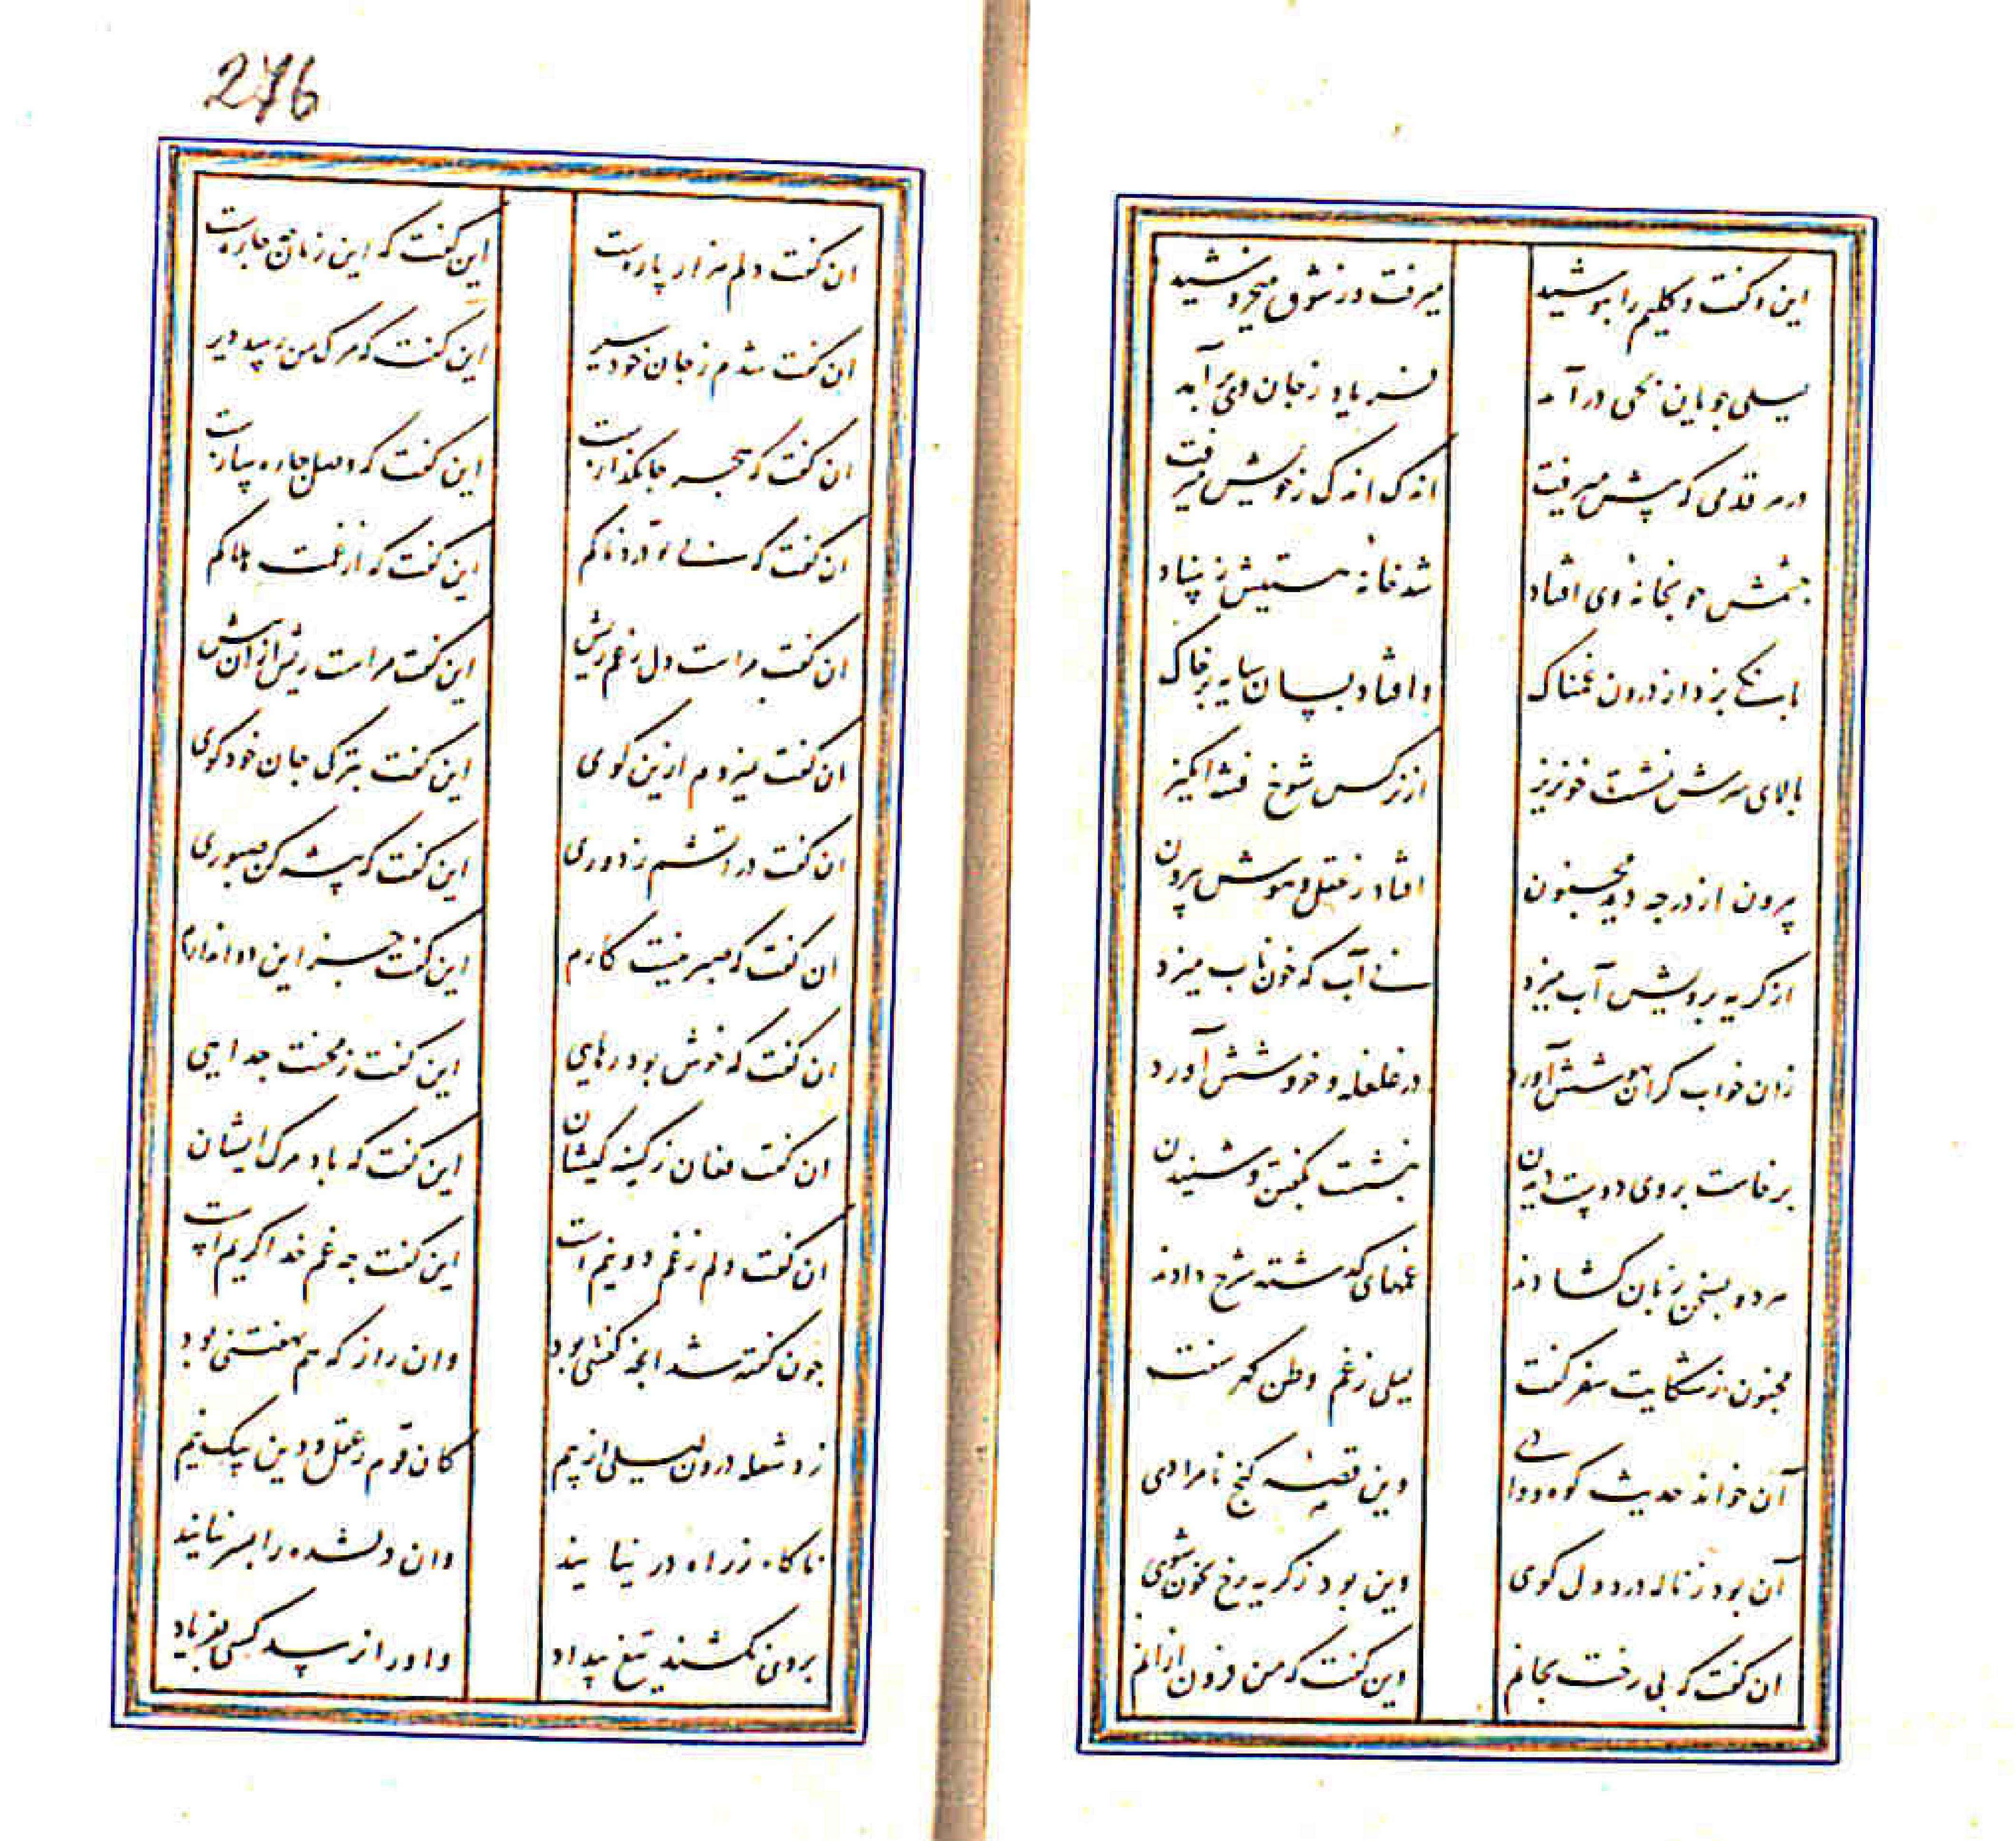 این گفت و گلیم را بپوشید    میرفت و ز شوق میخروشید
لیلی چو باین نحی در آمد    فریاد ز جان وی بر آمد
در هر قدمی که پیش میرفت    اندک اندک ز خویش میرفت
چشمش چو بخانهٔ وی افتاد    شد خانهٔ هستیش ز بنیاد
بانگی بزد از درون غمناک    و افتاد بسان سایه بر خاک
بالای سرش نشست خونریز    از نرگس شوخ فتنه انگیز
بیرون از در چه دید مجنون    افتاد ز عقل و هوش بیرون
از گریه برویش آب میزد    نی آب که خون ناب میزد
زان خواب گران بهوشش آورد    در غلغله و خروشش آورد
برخاست بروی دوست دیدن    بنشست بگفتن و شنیدن
هر دو بسخن زبان گشادند    غمهای گذشته شرح دادند
مجنون ز شکایت سفر گفت    لیلی ز غم وطن گهر سفت
آن خواند حدیث کوه و وادی    وین قصهٔ کنج نامرادی
آن بود ز ناله درد دل گوی    وین بود ز گریه رخ بخون شوی
ان گفت که بی رخت بجانم    وین گفت که من فزون ازانم
276
ان گفت دلم هزار پاره‌ست    این گفت که این زمان چه چاره‌ست
ان گفت شدم ز جان خود سیر    این گفت که مرگ من رسید دیر
ان گفت که هجر جانگدازست    این گفت که وصل چاره سازست
ان گفت که بی تو دردناکم    این گفت که از غمت هلاکم
ان گفت مراست دل ز غم ریش    این گفت مراست ریش ازان بیش
ان گفت نمیروم ازین کوی    این گفت بترک جان خود گوی
ان گفت در آتشم ز دوری    این گفت که پیشه کن صبوری
ان گفت که صبر نیست کارم    این گفت جز این دوا ندارم
ان گفت که خوش بود رهایی    این گفت ز محنت جدایی
ان گفت فغان ز کینه کیشان    این گفت که باد مرگ ایشان
ان گفت دلم ز غم دو نیم است    این گفت چه غم خدا کریم است
چون گفته شد انچه گفتنی بود    وان راز که هم نهفتنی بود
زد شعله درون لیلی از بیم    کان قوم ز عقل و دین یک نیم
ناگاه ز راه در نیایند    وان دلشده را بسر نیایند
بروی نکشند تیغ بیداد    و او را نرسد کسی بفریاد